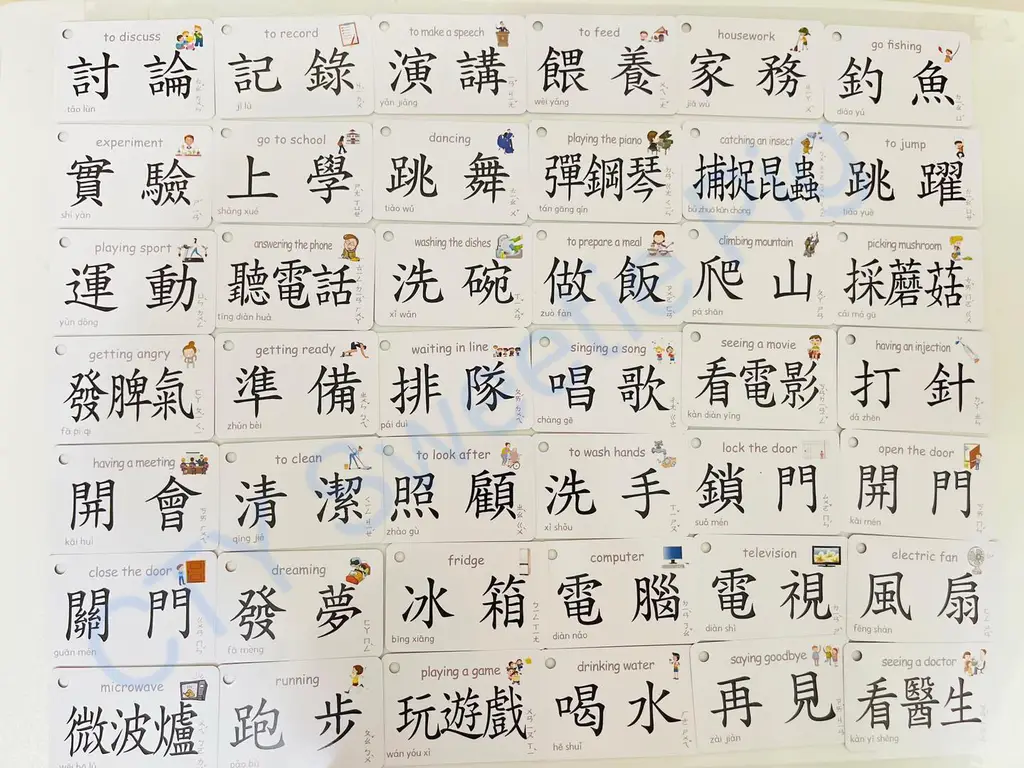 to discuss
討論
tǎo lùn
to record
記錄
jì lù
to make a speech
演講
yǎn jiǎng
to feed
餵養
wèi yǎng
housework
家務
jiā wù
go fishing
釣魚
diào yú
experiment
實驗
shí yàn
go to school
上學
shàng xué
dancing
跳舞
tiào wǔ
playing the piano
彈鋼琴
tán gāng qín
catching an insect
捕捉昆蟲
bǔ zhuō kūn chóng
to jump
跳躍
tiào yuè
playing sport
運動
yùn dòng
answering the phone
聽電話
tīng diàn huà
washing the dishes
洗碗
xǐ wǎn
to prepare a meal
做飯
zuò fàn
climbing mountain
爬山
pá shān
picking mushroom
採蘑菇
cǎi mó gū
getting angry
發脾氣
fā pí qì
getting ready
準備
zhǔn bèi
waiting in line
排隊
pái duì
singing a song
唱歌
chàng gē
seeing a movie
看電影
kàn diàn yǐng
having an injection
打針
dǎ zhēn
having a meeting
開會
kāi huì
to clean
清潔
qīng jié
to look after
照顧
zhào gù
to wash hands
洗手
xǐ shǒu
lock the door
鎖門
suǒ mén
open the door
開門
kāi mén
close the door
關門
guān mén
dreaming
發夢
fā mèng
fridge
冰箱
bīng xiāng
computer
電腦
diàn nǎo
television
電視
diàn shì
electric fan
風扇
fēng shàn
microwave
微波爐
running
跑步
pǎo bù
playing a game
玩遊戲
wán yóu xì
drinking water
喝水
hē shuǐ
saying goodbye
再見
zài jiàn
seeing a doctor
看醫生
kàn yī shēng
CTY Sweetie Pig